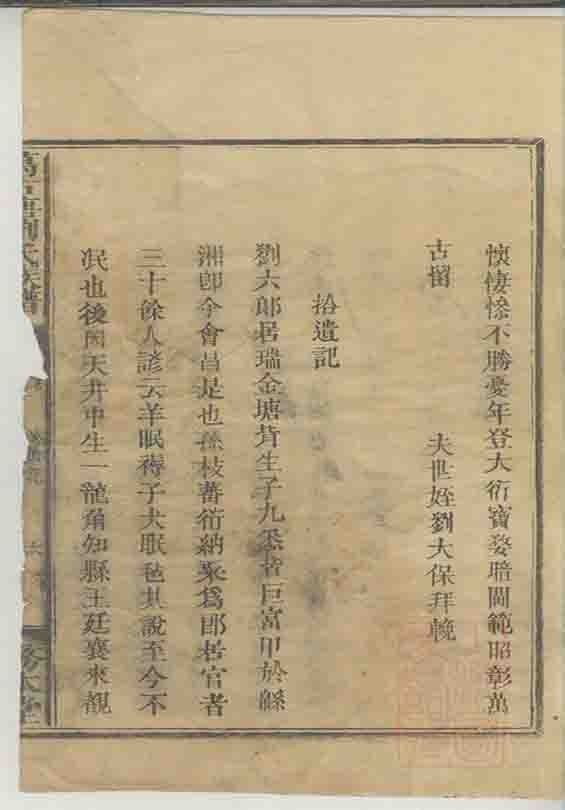 懷悽慘不勝憂年登大衍寶婺暗閫範昭彰萬
古留
夫世姪劉大保拜輓
拾遺記
劉六郎居瑞金塘背生子九派皆巨富甲於縣
湘郎今會昌是也孫枝蕃衍納粟為郎居官者
三十餘人諺云羊眠得子犬眠毡其說至今不
泯也後因天井中生一龍角知縣王廷襄來觀
劉氏族譜
務本堂